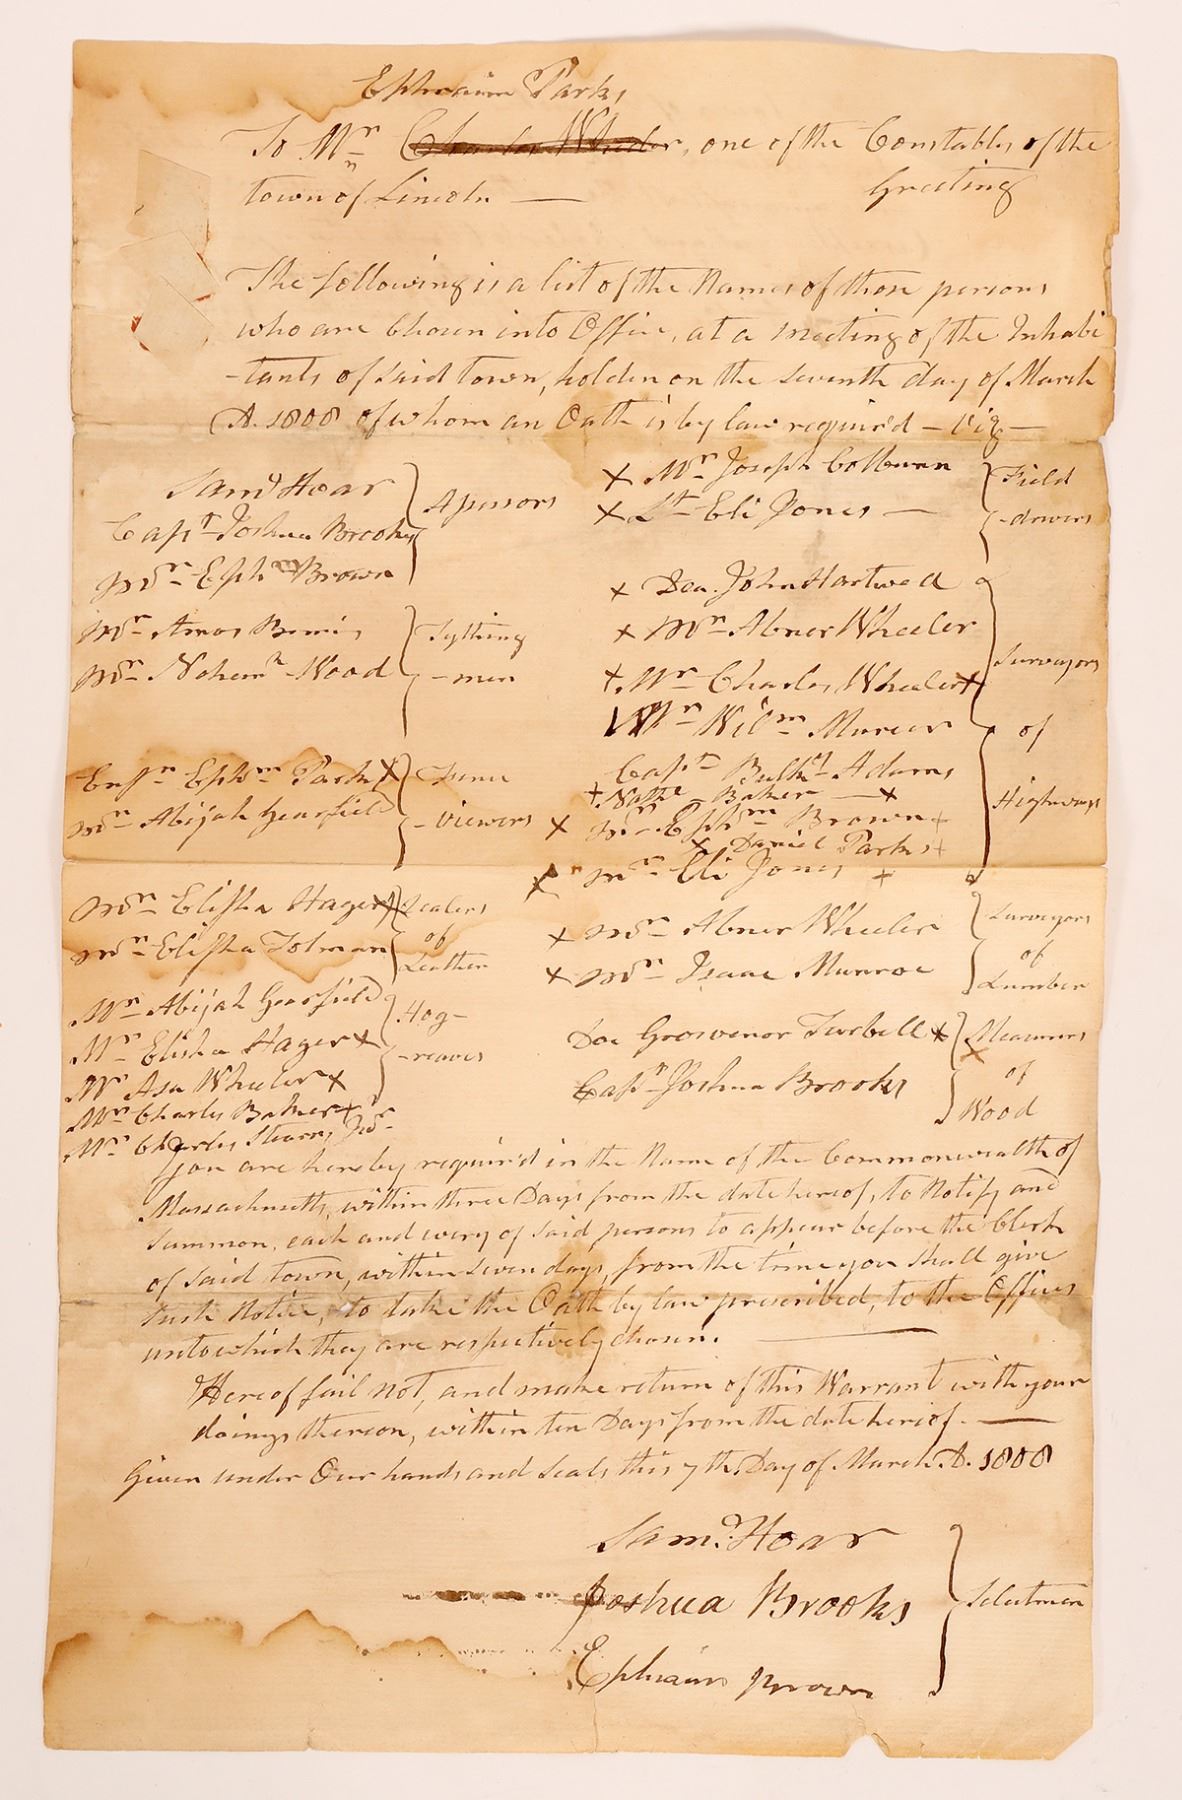 Ephraim Parks
To Mr Charles Wheeler, one of the Constables of the
town of Lincoln — Greeting
The following is a list of the Names of those persons
who are Chosen into Office, at a meeting of the Inhabi
-tants of said town, holden on the seventh day of March
A. 1808 of whom an Oath is by law requir'd — Viz —
Saml Hoar
Capt Joshua Brooks
Mr Ephm Brown
Assessors
Mr Amos Bemis
Mr Nehemh Wood
Tything
-men
Ensn Ephm Parks X
Mr Abijah Gearfield
Fence
-Viewers
Mr Elisha Hager X
Mr Elisha Tolman
Sealers
of
Leather
Mr Abijah Gearfield
Mr Elisha Hager X
Mr Asa Wheeler X
Mr Charles Baker +
Mr Charles Stearns Jur
Hog-
-reaves
X Mr Joseph Colburn
X Lt Eli Jones —
Field
-drivers
X Dea. John Hartwell
X Mr Abner Wheeler
+ Mr Charles Wheeler +
Mr Wilm Mercer
Capt Bulkl Adams
+ Nathl Baker — X
X Mr Ephm Brown +
X Daniel Parks +
X Mr Eli Jones +
Surveyors
of
Highways
X Mr Abner Wheeler
X Mr Isaac Munroe
Surveyors
of
Lumber
Doc Grosvenor Tarbell X
Capn Joshua Brooks
Measurers
X
of
Wood
You are hereby requir'd in the Name of the Commonwealth of
Massachusetts, within three Days from the date hereof, to Notify and
Summon, each and every of said persons to appear before the Clerk
of said town, within seven days, from the time you shall give
such Notice, to take the Oath by law prescribed, to the Offices
unto which they are respectively chosen. —
Hereof fail not, and make return of this Warrant with your
doings thereon, within ten Days from the date hereof. —
Given under Our hands and Seals this 7th Day of March A. 1808
Saml Hoar
Joshua Brooks
Ephraim Brown
Selectmen